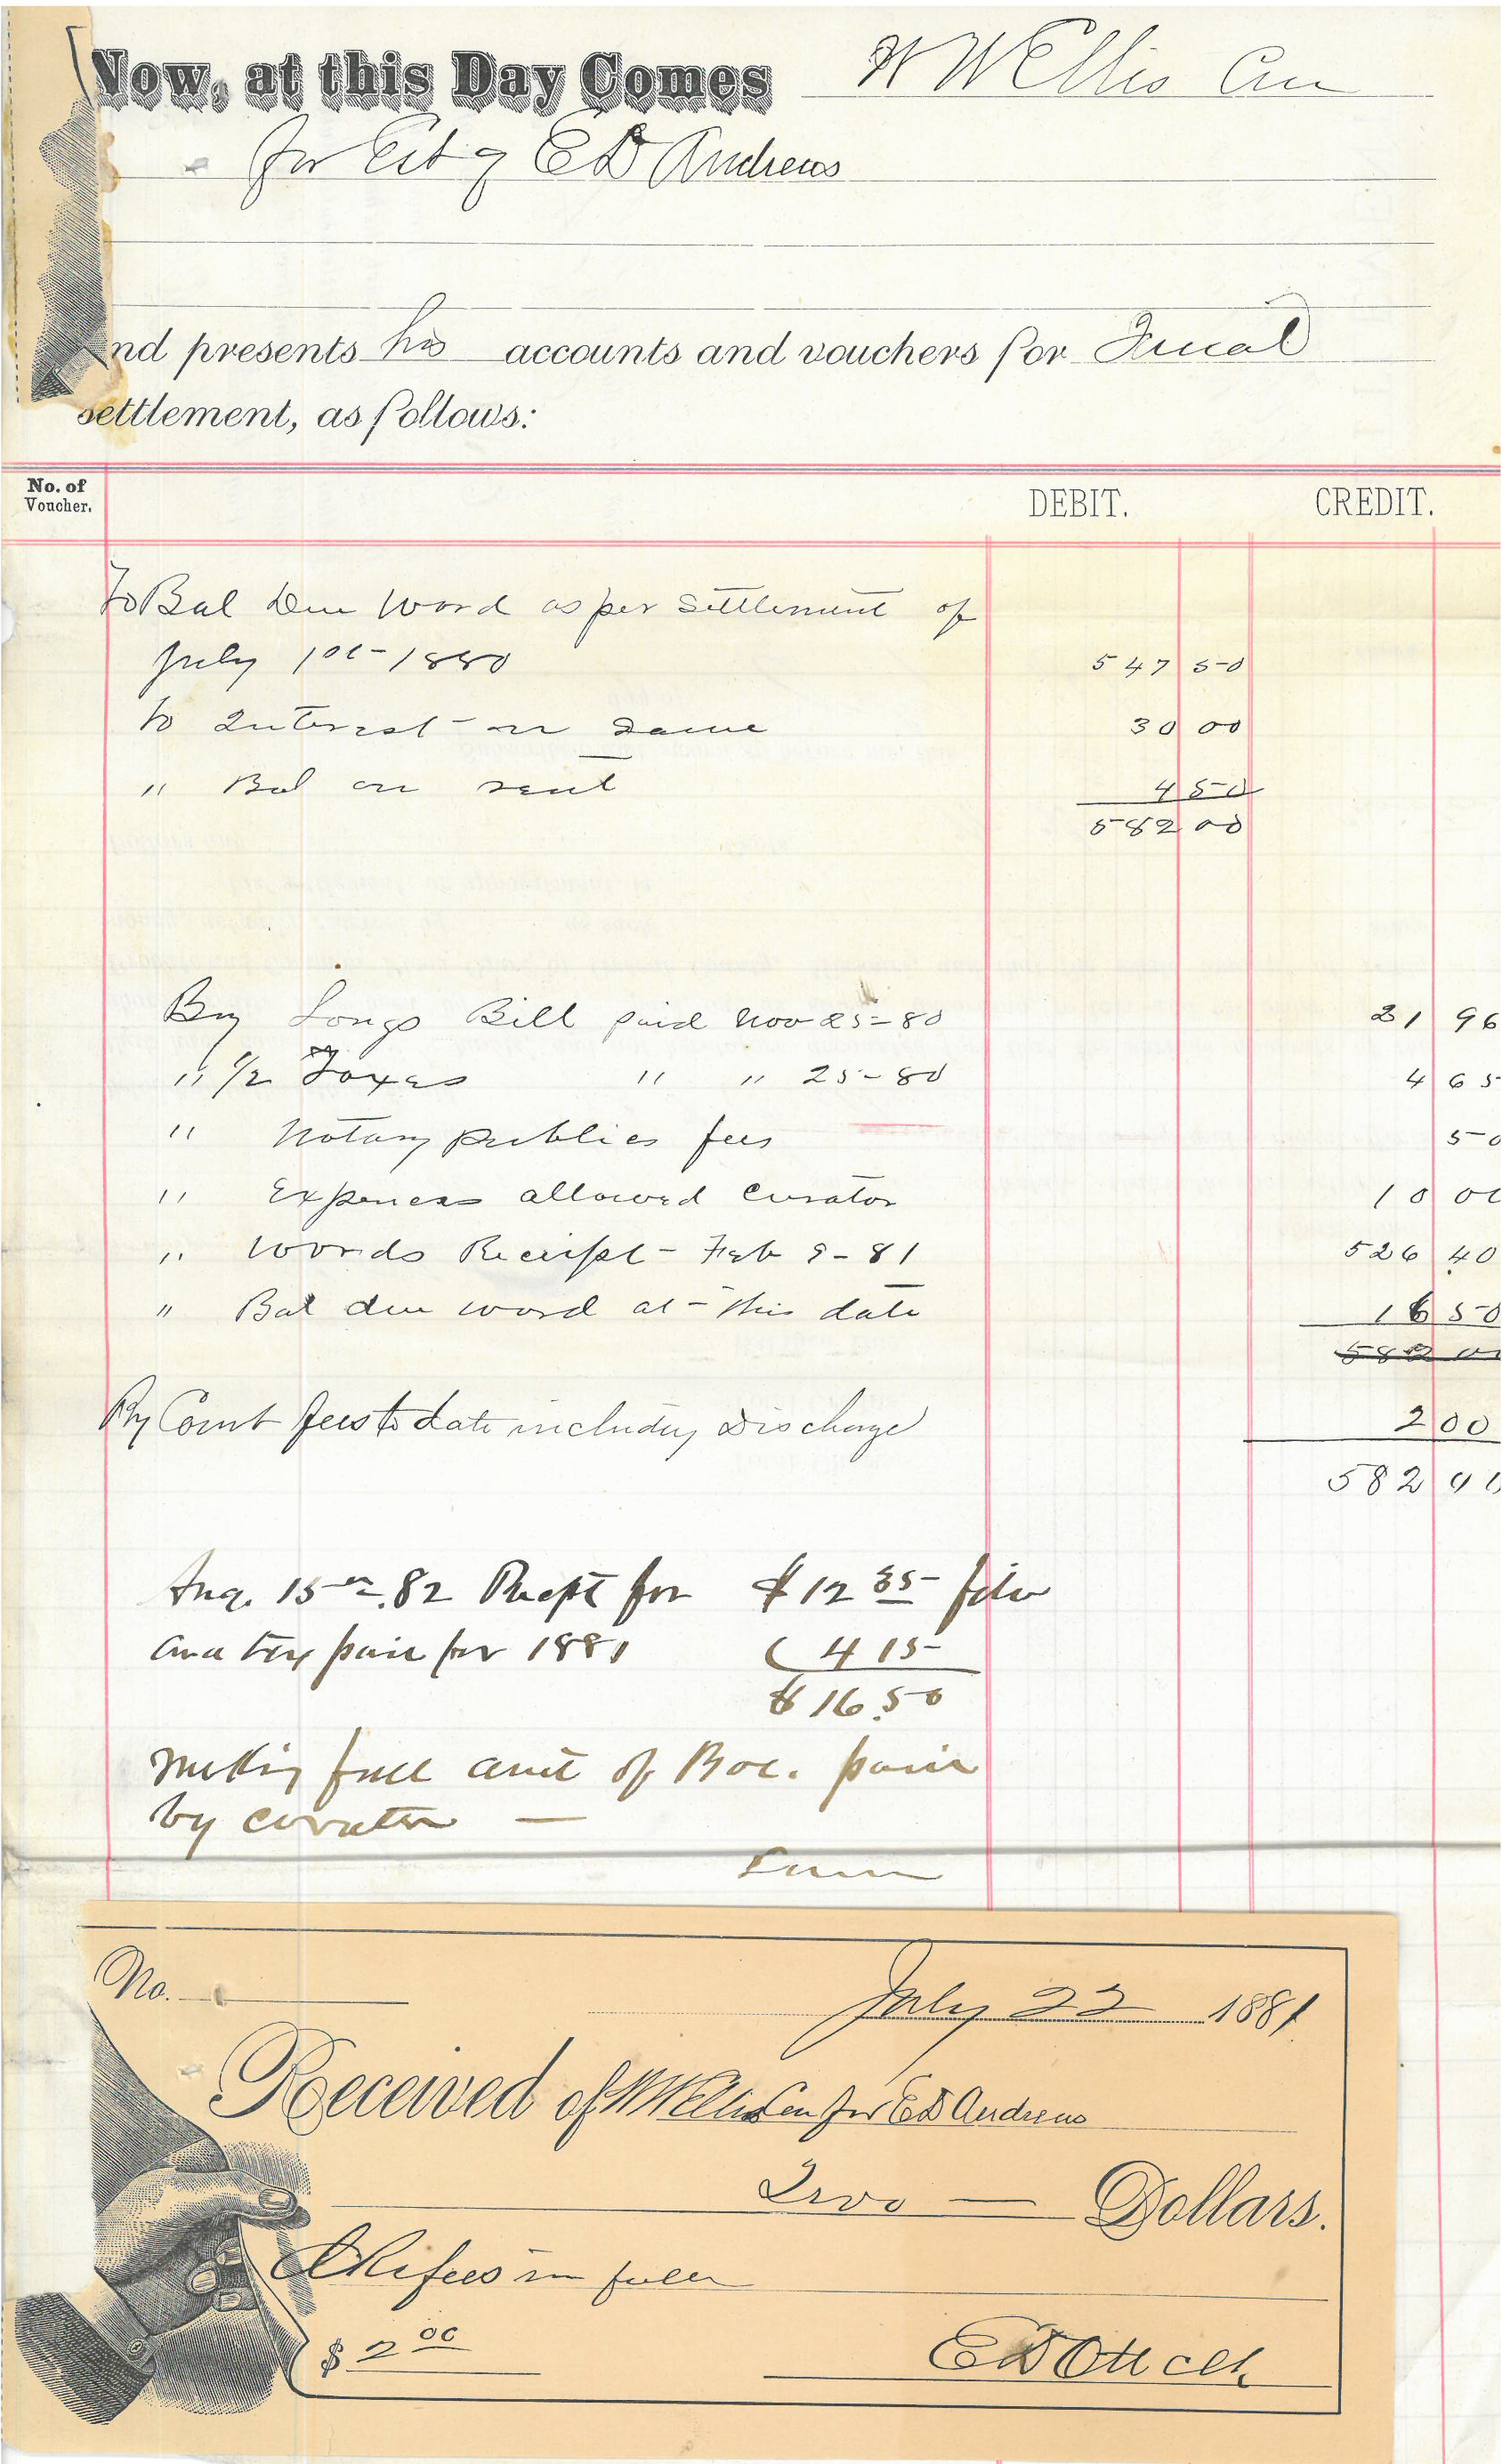 Now, at this Day Comes W W Ellis Cur
for Est of E D Andrews
and presents his accounts and vouchers for Final
settlement, as follows:
No. of Voucher. DEBIT. CREDIT.
To Bal Due Ward as per settlement of
July 1st 1880 547 50
to Interest on same 30 00
" Bal on rent 4 50
582 00
By Longs Bill paid Nov 25-80 21 96
" 1/2 Taxes " " 25-80 4 65
" Notary publics fees 50
" Expences allowed Curator 10 00
" Wards Receipt - Feb 9-81 526 40
" Bal due ward at this date 16 50
582 00
By Court fees to date including Discharge 2 00
582 00
Aug. 15th 82 Recpt for $12 35 filed
and tax paid for 1881 4 15
$16.50
making full amt of Bal. paid
by curator —
No.
July 22 1881
Received of W W Ellis Cur for E D Andrews
Two — Dollars.
Clk fees in full
$ 2 00
E D Ott clk